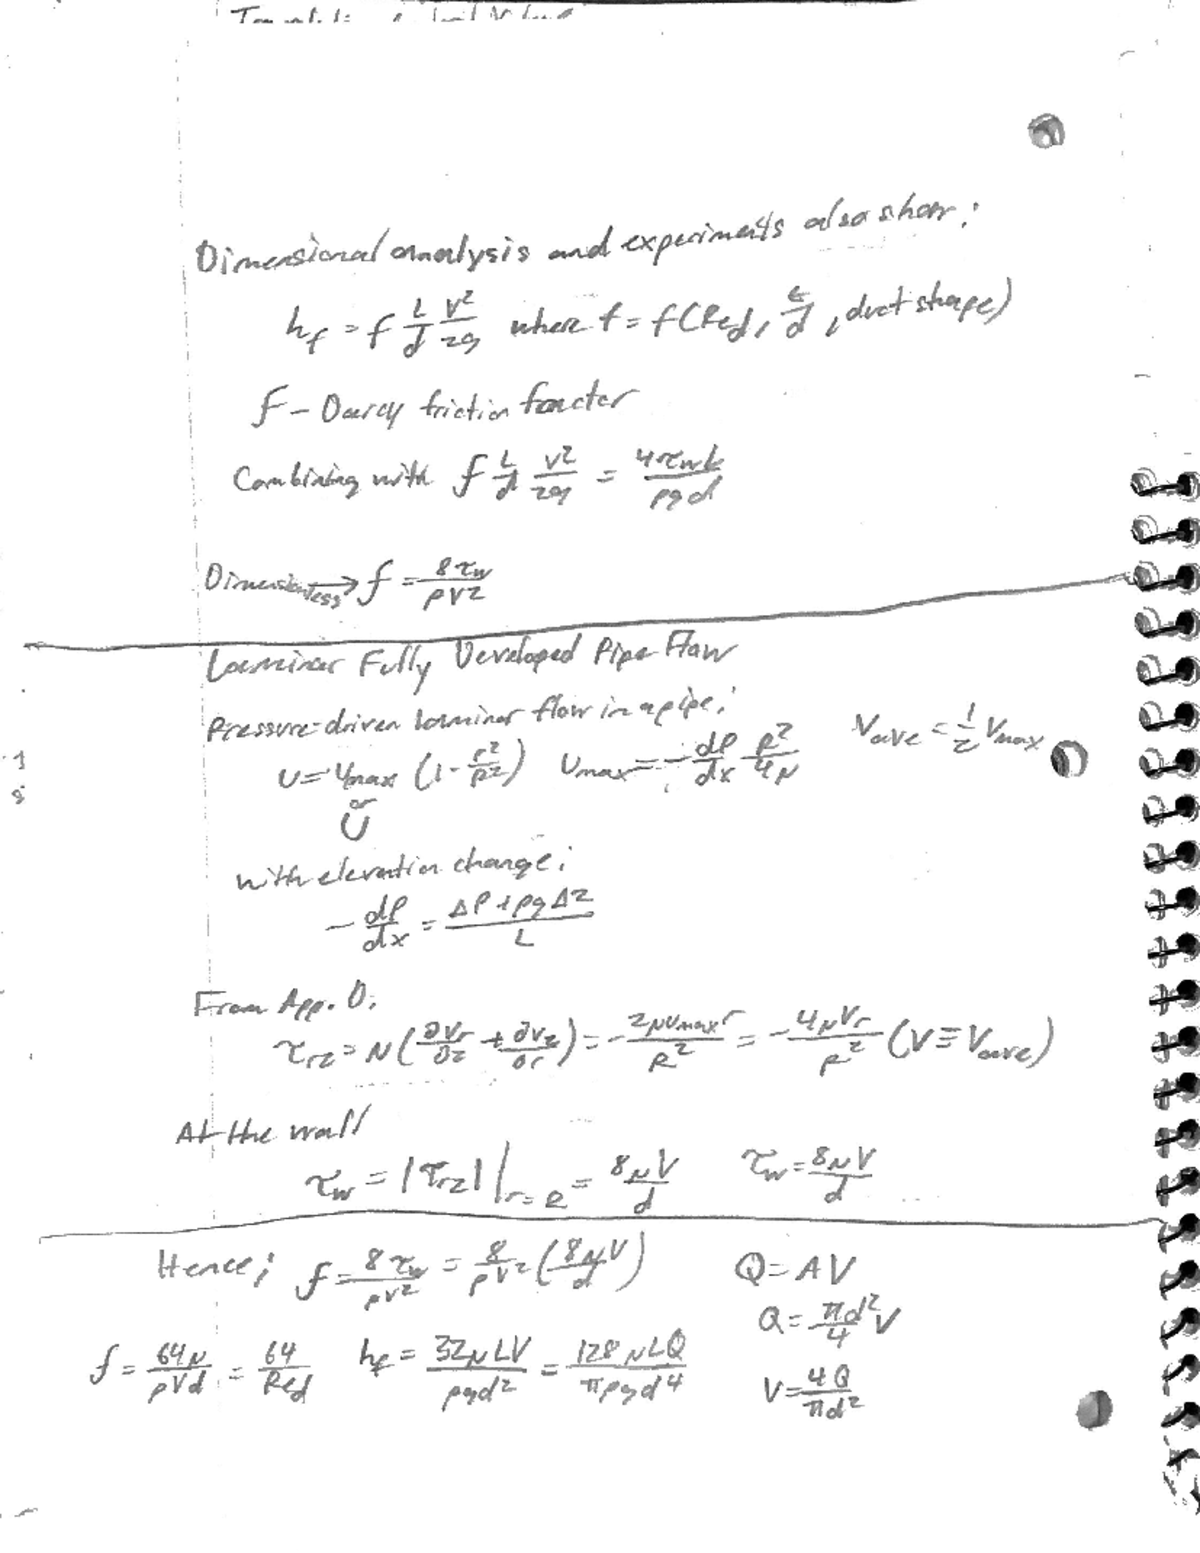 Dimensional analysis and experiments also show:
h_f = f L/d V²/2g where f = f(Re_d, ε/d, duct shape)
f – Darcy friction factor
Combining with f L/d V²/2g = 4τ_w L/ρgd
Dimensionless → f = 8τ_w/ρV²
Laminar Fully Developed Pipe Flow
Pressure-driven laminar flow in a pipe:
u = u_max (1 - r²/R²) u_max = -dP/dx R²/4μ V_ave = 1/2 V_max
or
U
with elevation change:
-dP/dx = ΔP + ρgΔz/L
From App. D:
τ_rz = μ(∂v_r/∂z + ∂v_z/∂r) = -2μu_max r/R² = -4μVr/R² (V ≡ V_ave)
At the wall
τ_w = |τ_rz| |_r=R = 8μV/d τ_w = 8μV/d
Hence; f = 8τ_w/ρV² = 8/ρV² (8μV/d) Q = AV
Q = πd²/4 V
f = 64μ/ρVd = 64/Re_d h_f = 32μLV/ρgd² = 128μLQ/πρgd⁴
V = 4Q/πd²